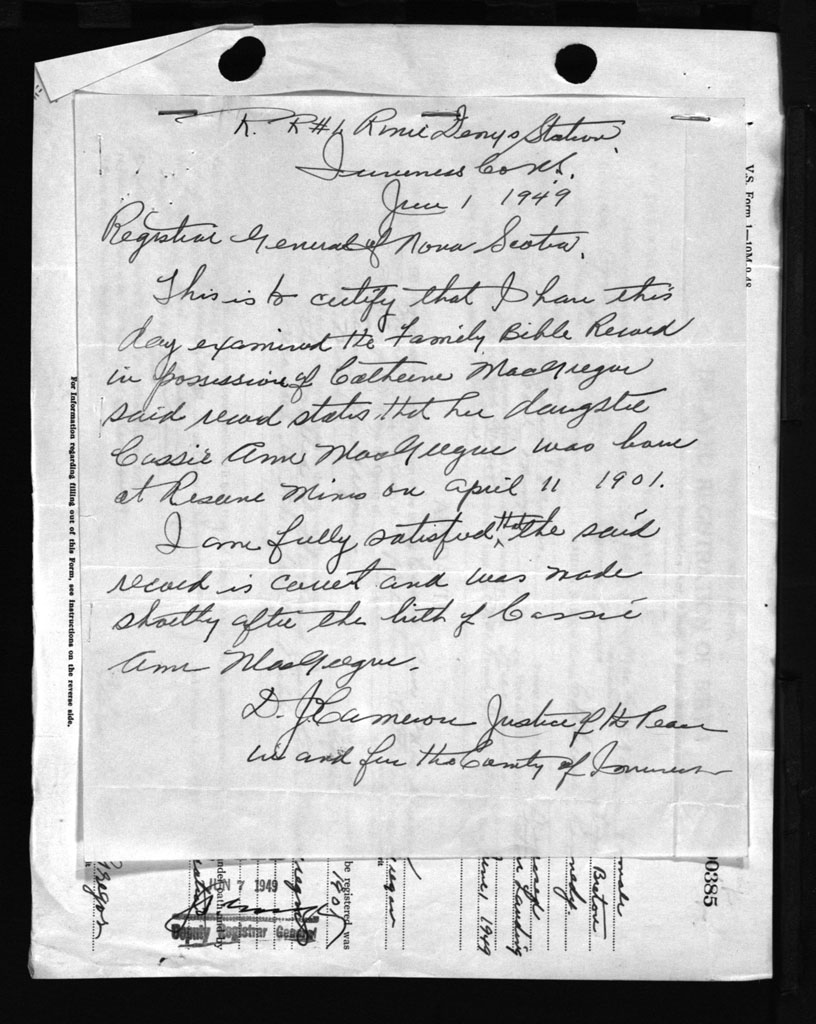 R. R#1 River Denys Station
Inverness Co N.S.
June 1 1949
Registrar General of Nova Scotia.
This is to certify that I have this
day examined the Family Bible Record
in possession of Catherine MacGregor
said record states that her daughter
Cassie Ann MacGregor was born
at Reserve Mines on April 11 1901.
I am fully satisfied that the said
record is correct and was made
shortly after the birth of Cassie
Ann MacGregor.
D. J. Cameron Justice of the Peace
in and for the County of Inverness
V.S. Form 1—10M-9-48
For Information regarding filling out of this Form, see Instructions on the reverse side.
00385
male
Breton
nedy.
Landing
June 1 1949
be registered was
1901
JUN 7 1949
Deputy Registrar General
under oath and by